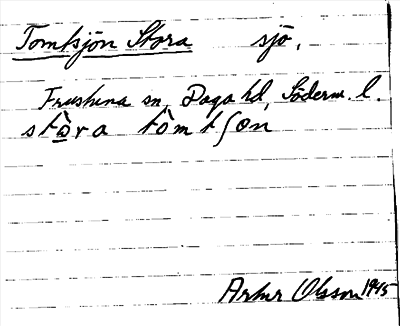 Tomtsjön Stora sjö.
Frustuna sn, Daga hd, Söderm. l.
stɷ̀ra tòmtʃøn
Artur Olsson 1945